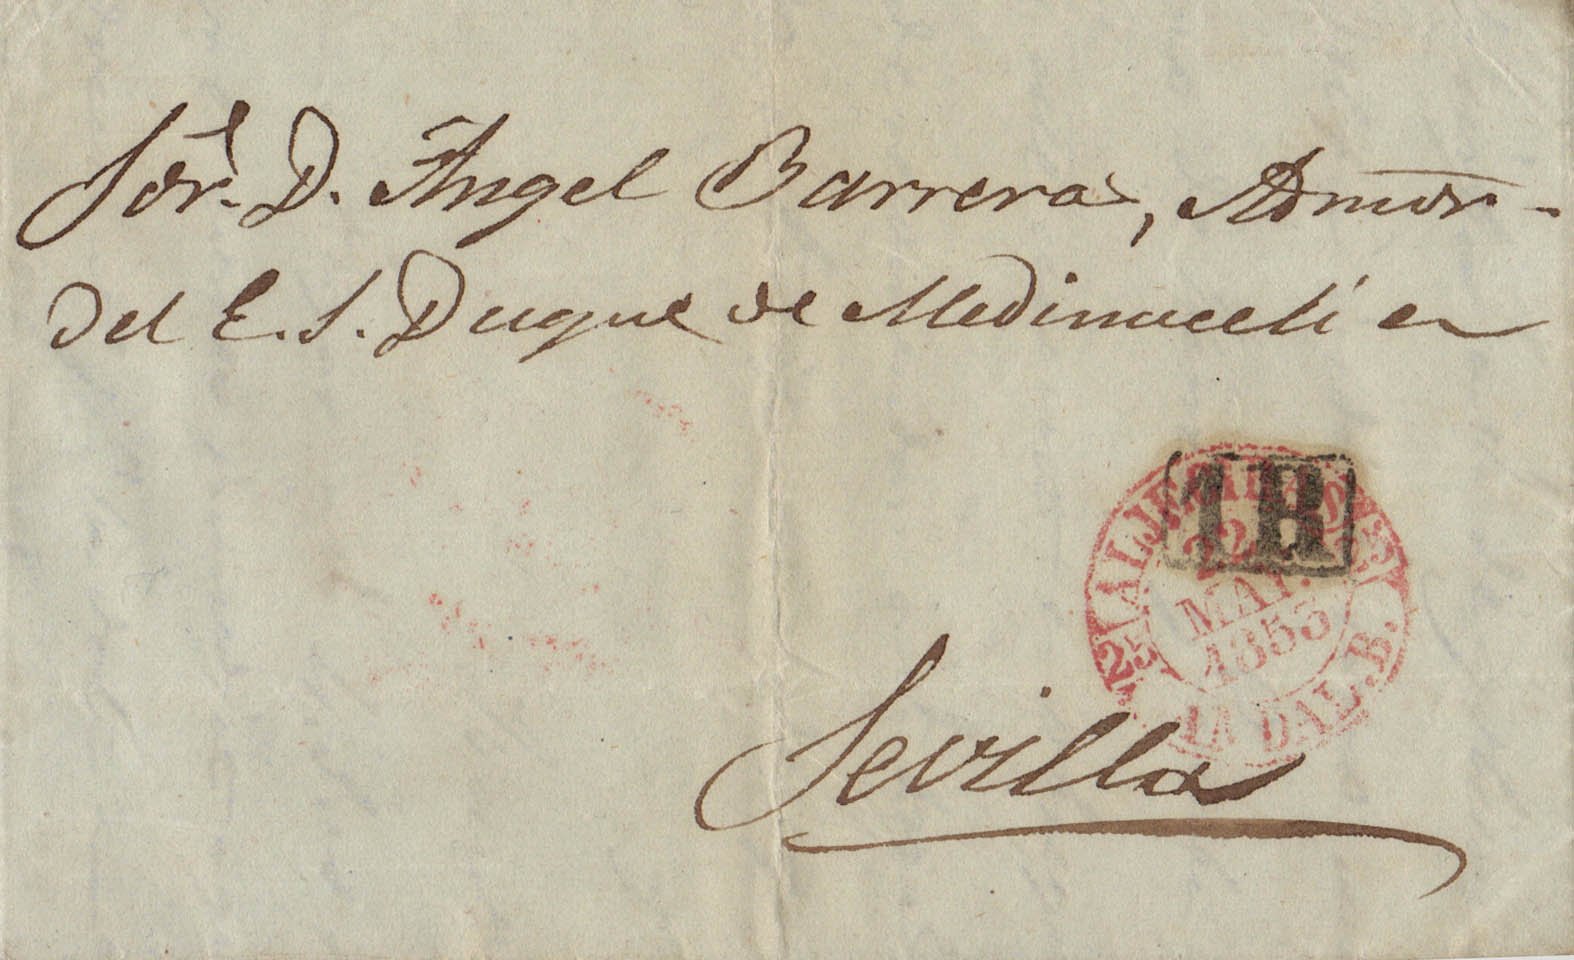 Sor. D. Angel Barrera, Admor.
del E. S. Duque de Medinaceli en
1R
ALJECIRAS
22
MAY.
1853
25 25
ANDAL. B.
Sevilla